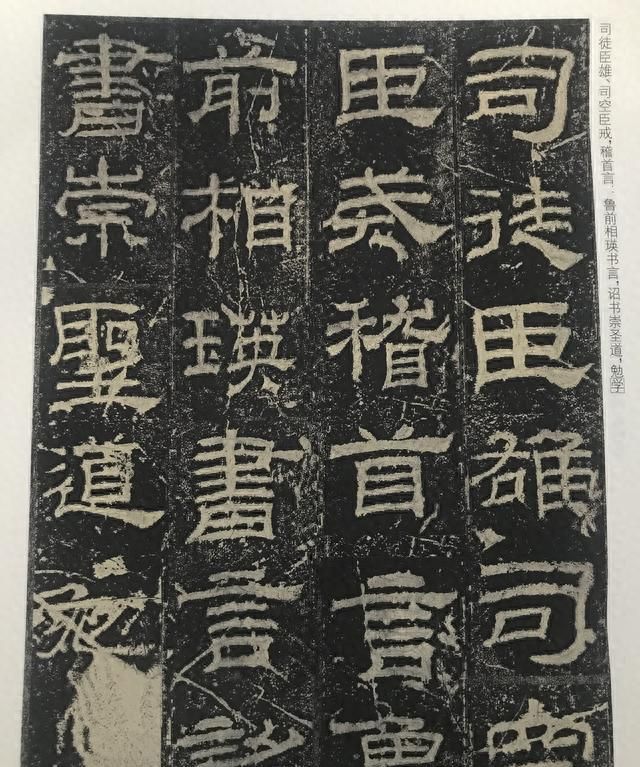 司徒臣雄、司空臣戒，稽首言：鲁前相瑛书言，诏书崇圣道，勉学
司徒臣雄司空
臣戒稽首言魯
前相瑛書言詔
書崇聖道勉